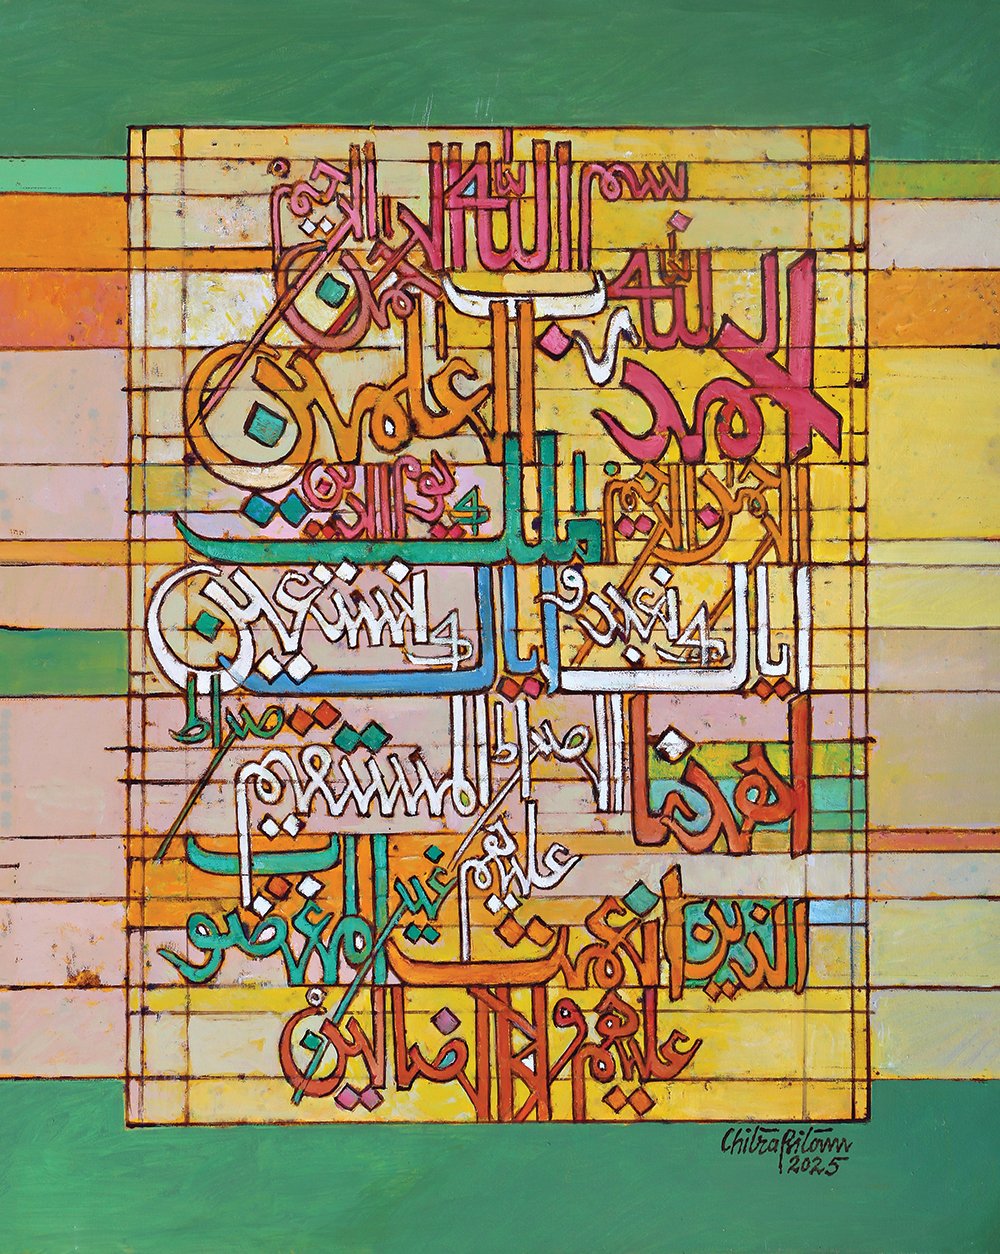 بسم الله الرحمن الرحيم
الحمد لله رب العلمين
الرحمن الرحيم ملك يوم الدين
اياك نعبد و اياك نستعين
اهدنا الصراط المستقيم صراط
الذين انعمت عليهم غير المغضوب
عليهم ولا الضالين
2025